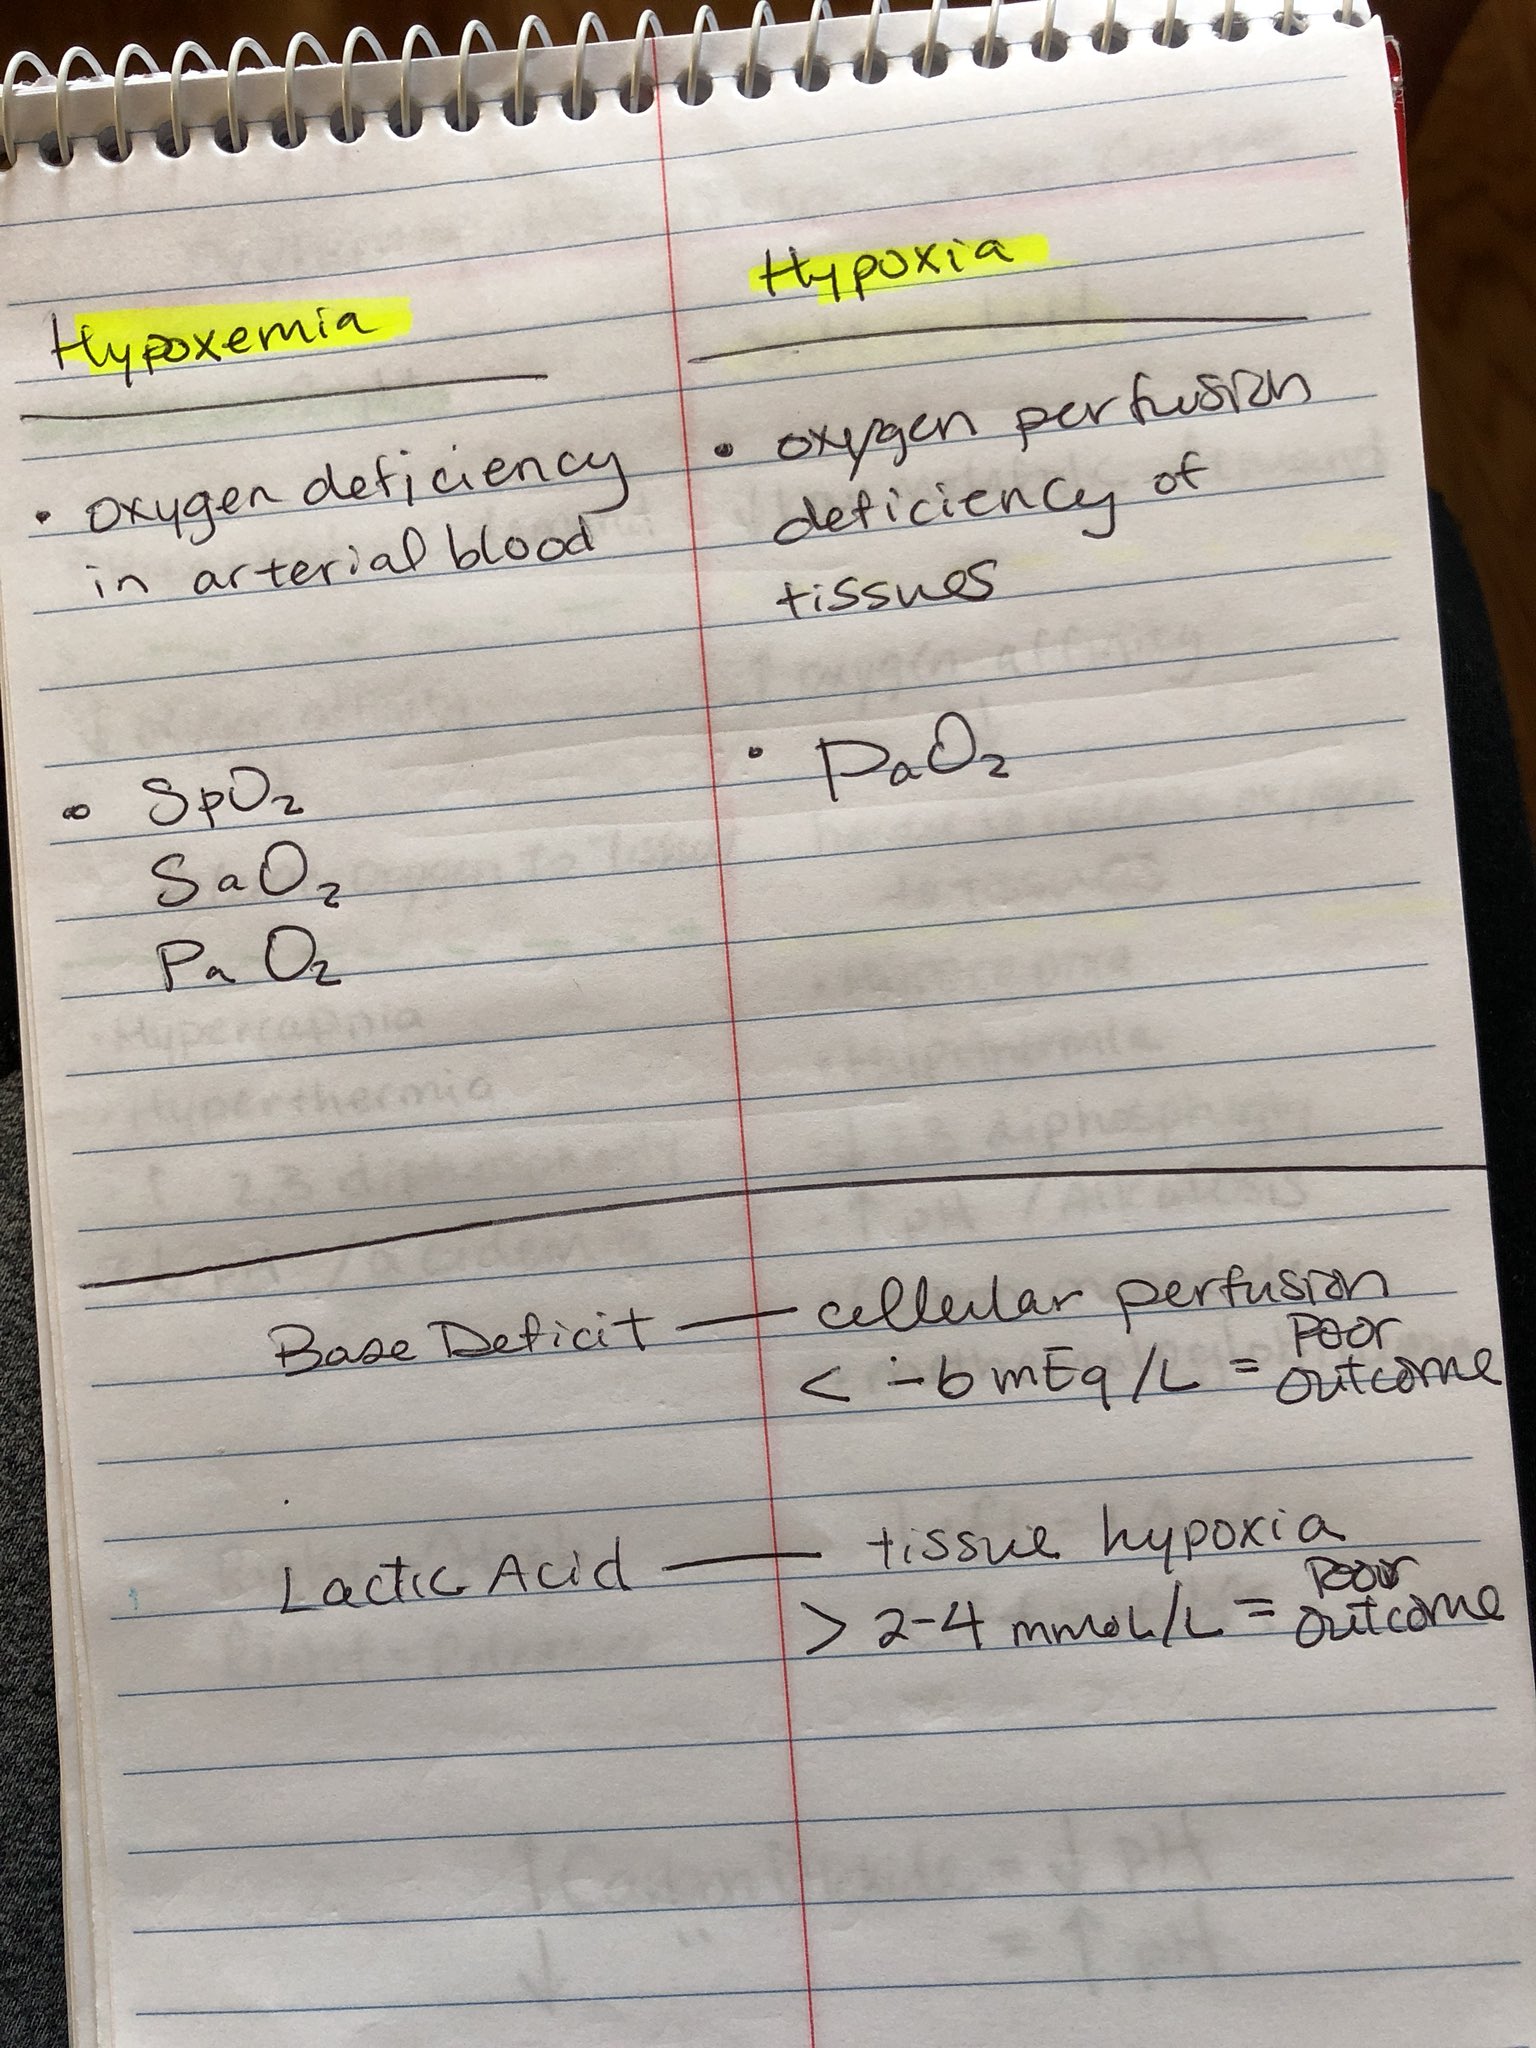 Hypoxemia
• oxygen deficiency
in arterial blood
• SpO2
SaO2
PaO2
Hypoxia
• oxygen perfusion
deficiency of
tissues
• PaO2
Base Deficit — cellular perfusion
< -6 mEq/L = Poor outcome
Lactic Acid — tissue hypoxia
> 2-4 mmoL/L = Poor outcome